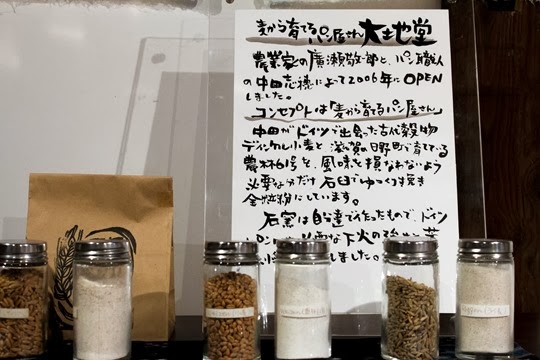 麦から育てるパン屋さん 大地堂
農業家の廣瀬敬一郎と、パン職人
の中田志穂によって2006年にOPEN
しました。
コンセプトは「麦から育てるパン屋さん」
中田がドイツで出会った古代穀物
ディンケル小麦と滋賀の日野町で育てている
農林61号を、風味を損なわないよう
必要な分だけ石臼でゆっくり挽き
全粒粉にしています。
石窯は自分達で作ったもので、ドイツ
下火の強さと
しました。